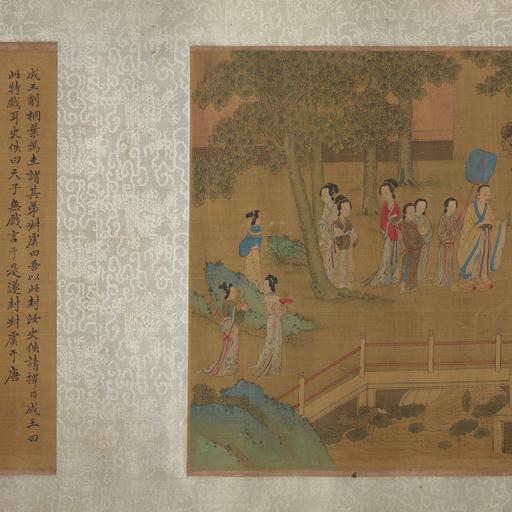 成王削桐葉為圭謂其弟叔虞曰吾以此封汝史佚請擇日成王曰
此特戲耳史佚曰天子無戲言于是遂封叔虞于唐